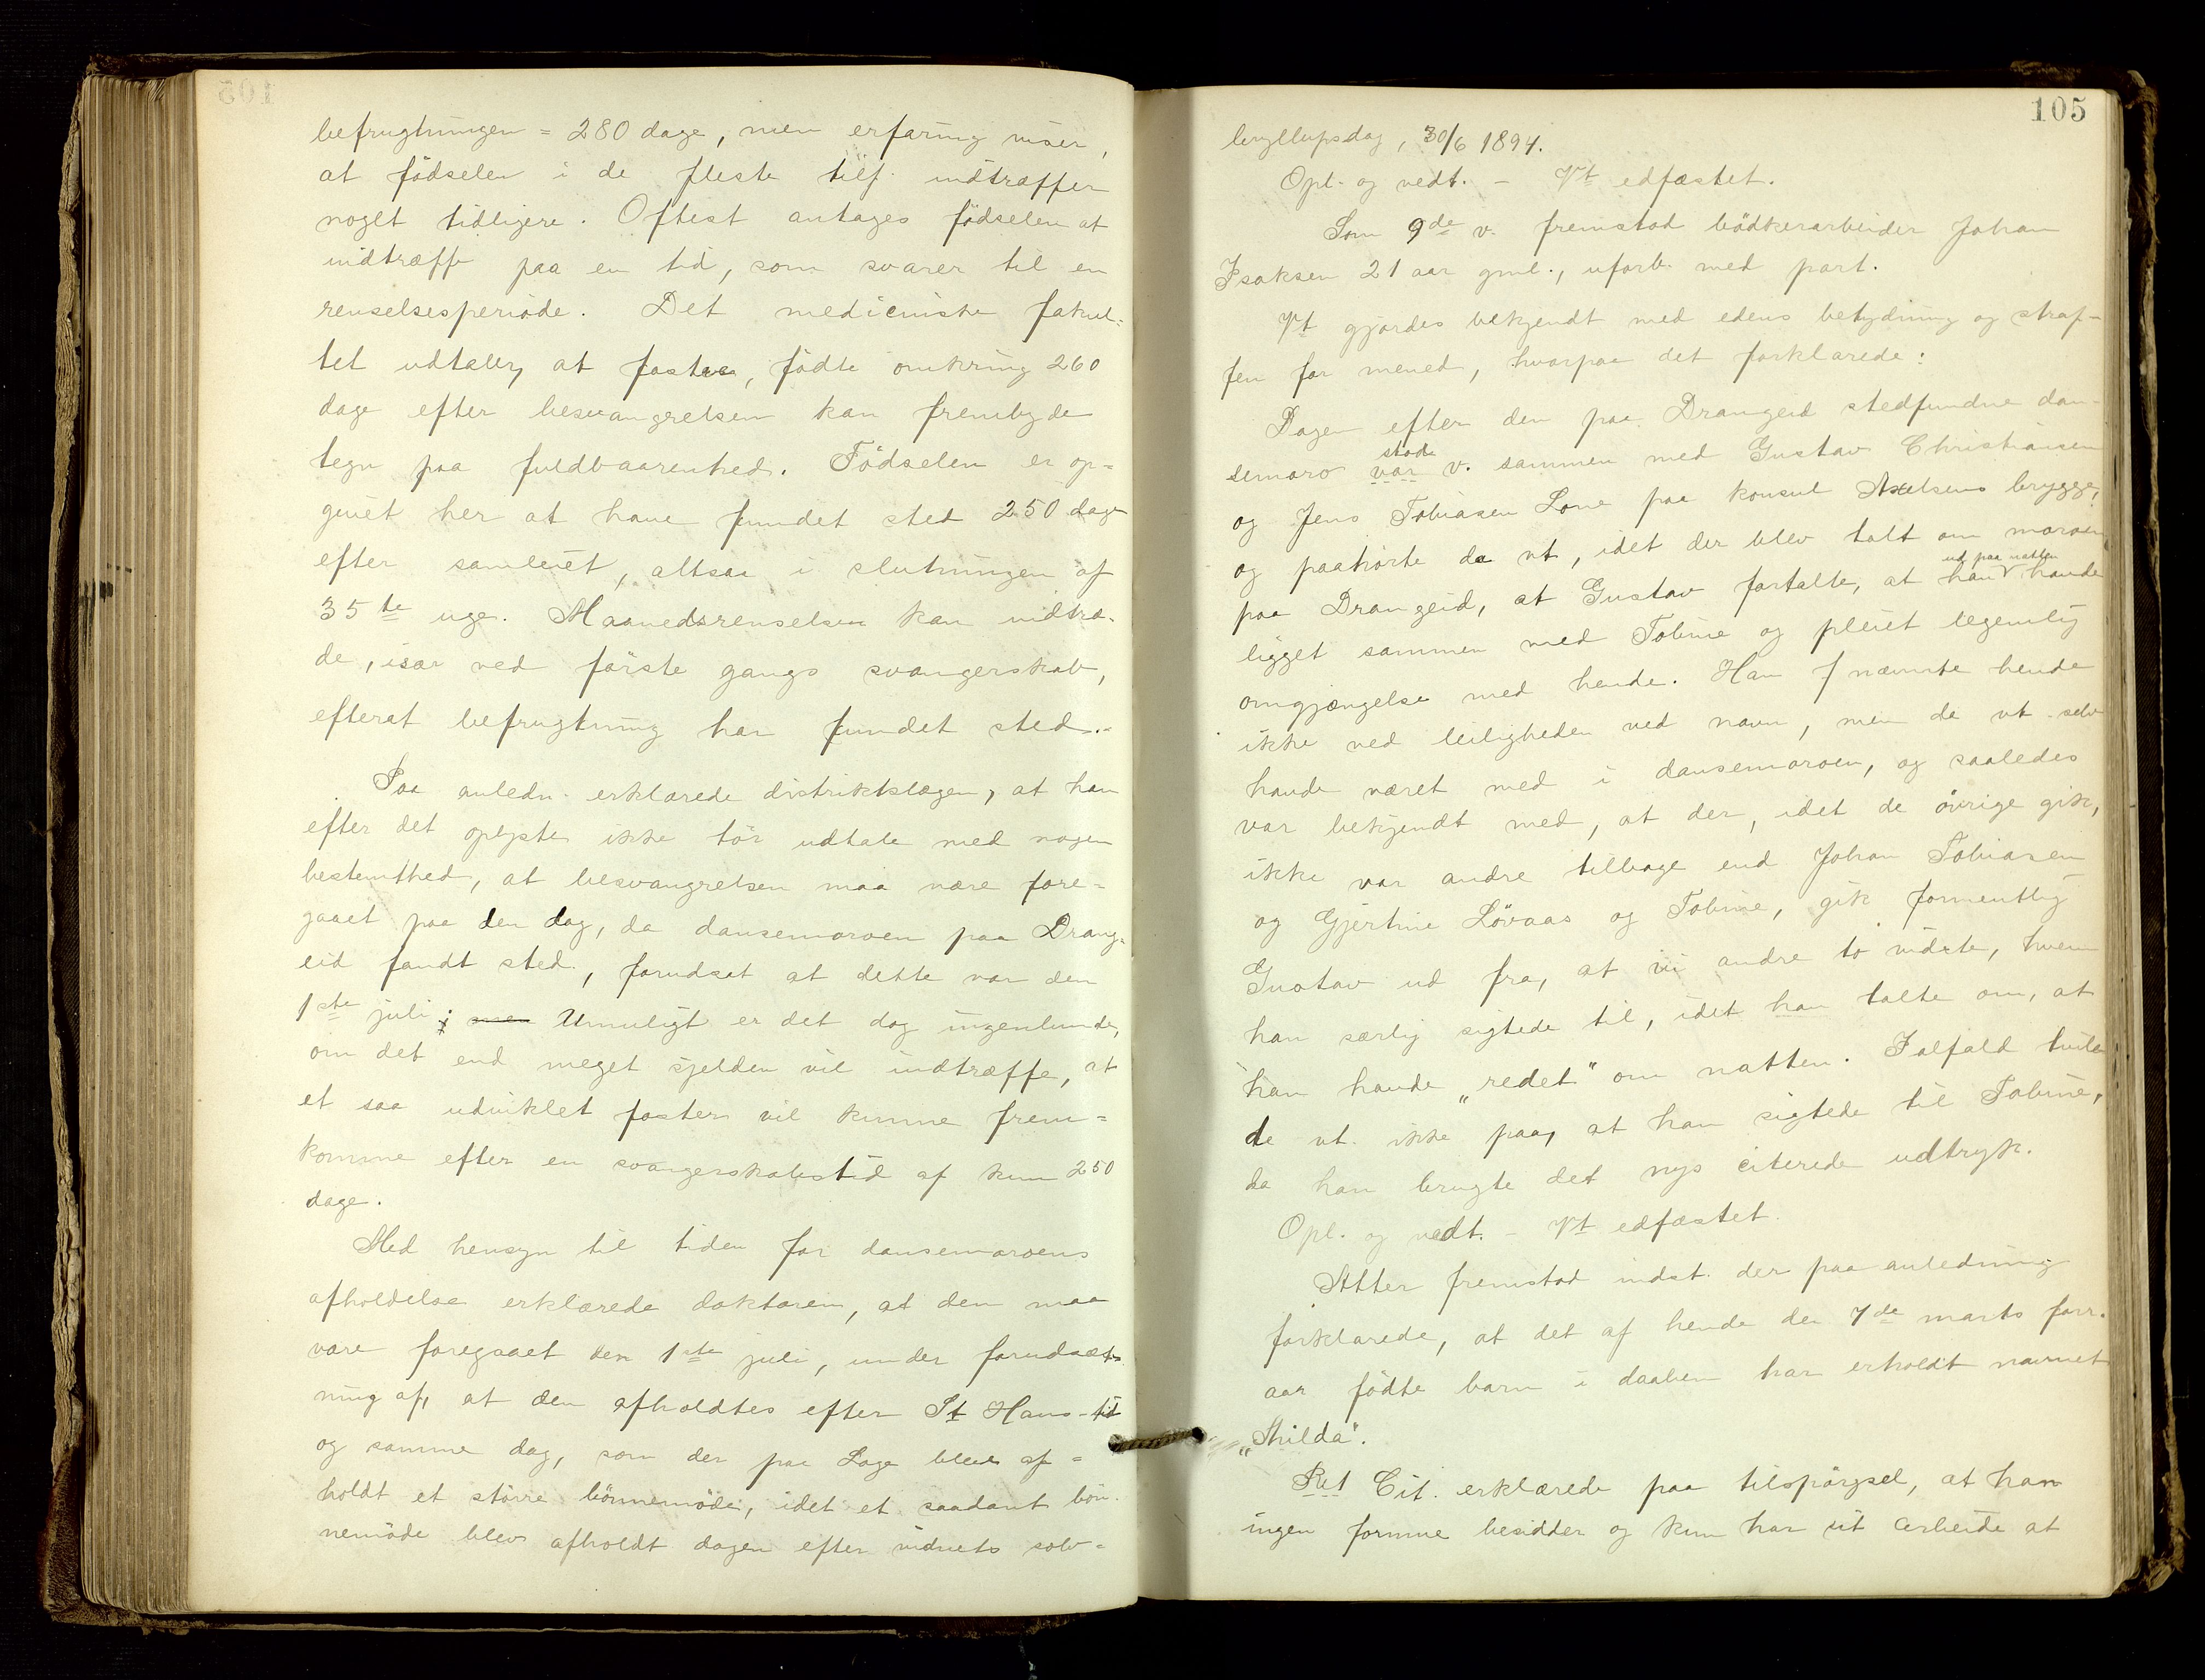 befrugtningen = 280 dage, men erfaring viser,
at födselen i de fleste tilf. indtræffer
noget tidligere. Oftest antages födselen at
indtræffe paa en tid, som svarer til en
renselsesperiode. Det medicinske fakul=
tet udtaler, at fostre, födte omkring 260
dage efter besvangrelsen kan frembyde
tegn paa fuldbaarenhed. Födselen er op=
givet her at have fundet sted 250 dage
efter samleiet, altsaa i slutningen af
35te uge. Maanedsrenselsen kan indtræ-
de, især ved förste gangs svangerskab,
efterat befrugtning har fundet sted.-
Paa anledn. erklærede distriktslægen, at han
efter det oplyste ikke tör udtale med nogen
bestemthed, at besvangrelsen maa være fore=
gaaet paa den dag, da dansemoroen paa Drang=
eid fandt sted, forudsat at dette var den
1ste juli; men Umuligt er det dog ingenlunde,
om det end meget sjelden vil indtræffe, at
et saa udviklet foster vil kunne frem=
komme efter en svangerskabstid af kun 250
dage.
Med hensyn til tiden for dansemoroens
afholdelse erklærede doktoren, at den maa
være foregaaet den 1ste juli, under forudsæt-
ning af, at den afholdtes efter St Hans-tid
og samme dag, som der paa Lage blev af=
holdt et större bönnemöde, idet et saadant bön-
nemöde blev afholdt dagen efter vidnets solv=
105
bryllupsdag, 30/6 1894.
Opl. og vedt. - Vt edfæstet.
Som 9de v. fremstod bödkerarbeider Johan
Isaksen 21 aar gml., uforb. med part.
Vt gjordes bekjendt med edens betydning og straf-
fen for mened, hvorpaa det forklarede:
Dagen efter den paa Drangeid stedfundne dan-
stod
semoro var v. sammen med Gustav Christiansen
og Jens Tobiasen Lone paa konsul Axelsens brygge,
og paahörte da vt, idet der blev talt om moroen
ud paa natten
paa Drangeid, at Gustav fortalte, at han havde
ligget sammen med Tobine og pleiet legemlig
omgjængelse med hende. Han nævnte hende
ikke ved leiligheden ved navn, men da vt selv
havde været med i dansemoroen, og saaledes
var bekjendt med, at der, idet de övrige gik,
ikke var andre tilbage end Johan Tobiasen
og Gjertine Lövaas og Tobine, gik formentlig
Gustav ud fra, at vi andre to vidste, hvem
han særlig sigtede til, idet han talte om, at
han havde „redet" om natten. Ialfald tvilte
de vt. ikke paa, at han sigtede til Tobine,
da han brugte det nys citerede udtryk.
Opl. og vedt. - Vt edfæstet.
Atter fremstod indst. der paa anledning
forklarede, at det af hende den 7de marts forr.
aar födte barn i daaben har erholdt navnet
„Thilda".
Cit. erklærede paa tilspörgsel, at han
ingen formue besidder og kun har sit arbeide at